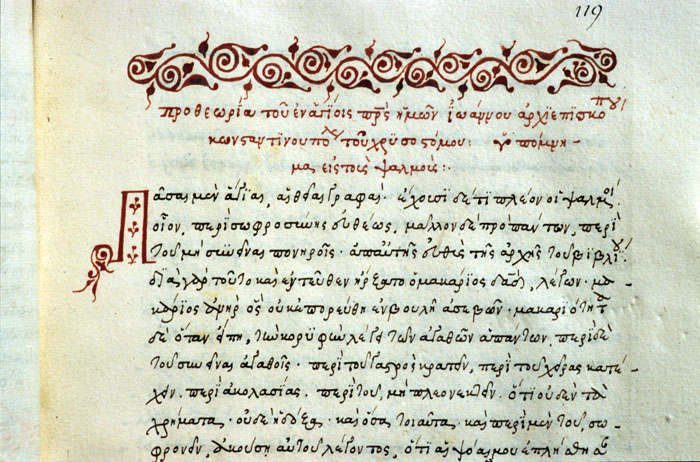 119
προθεωρία τοῦ ἐν ἁγίοις πρς ἡμῶν ἰωάννου ἀρχιεπισκόπου
κωνσταντινουπόλεως τοῦ χρυσοστόμου: ὑπόμνη-
μα εἰς τοὺς ψαλμούς:
Πᾶσαι μὲν ἅγιαι, αἱ θεῖαι γραφαί. ἔχουσι δέ τι πλέον οἱ ψαλμοί.
οἷον, περὶ σωφροσύνης εὐθέως, μᾶλλον δὲ πρὸ πάντων, περὶ
τοῦ μὴ συνεῖναι πονηροῖς. ἀπ' αὐτῆς εὐθὺς τῆς ἀρχῆς τοῦ βιβλίου
διὰ γὰρ τοῦτο καὶ ἐντεῦθεν ἤρξατο ὁ μακάριος δαδ, λέγων. μα
κάριος ἀνὴρ ὃς οὐκ ἐπορεύθη ἐν βουλῇ ἀσεβῶν. μακαριότητα
δὲ ὅταν εἴπη, τὴν κορυφὴν λέγει τῶν ἀγαθῶν ἁπάντων. περὶ δὲ
τοῦ συνεῖναι ἀγαθοῖς. περὶ τοῦ γαστρὸς κρατεῖν, περὶ τοῦ χεῖρας κατέ
χειν. περὶ ἀκολασίας. περὶ τοῦ μὴ πλεονεκτεῖν. ὅτι οὐδὲν τὰ
χρήματα. οὐδὲ ἡ δόξα. καὶ ὅσα τοιαῦτα. καὶ περὶ μὲν τοῦ σω
φρονεῖν, ἄκουση αὐτοῦ λέγοντος, ὅτι αἱ ψόαι μου ἐπλήσθησαν